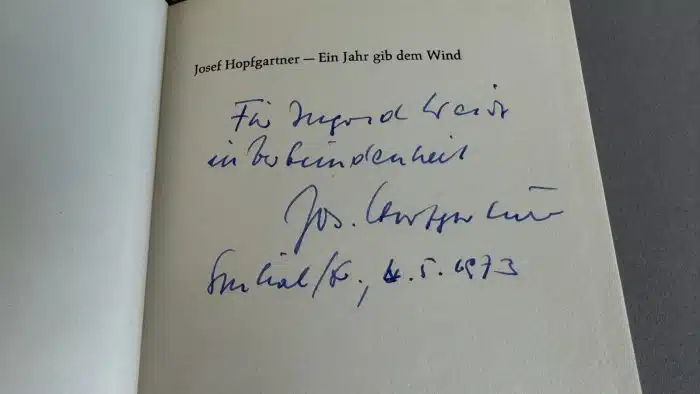 Josef Hopfgartner — Ein Jahr gib dem Wind
Für Ingrid
in Verbundenheit
Jos. Hopfgartner
4.5.1973